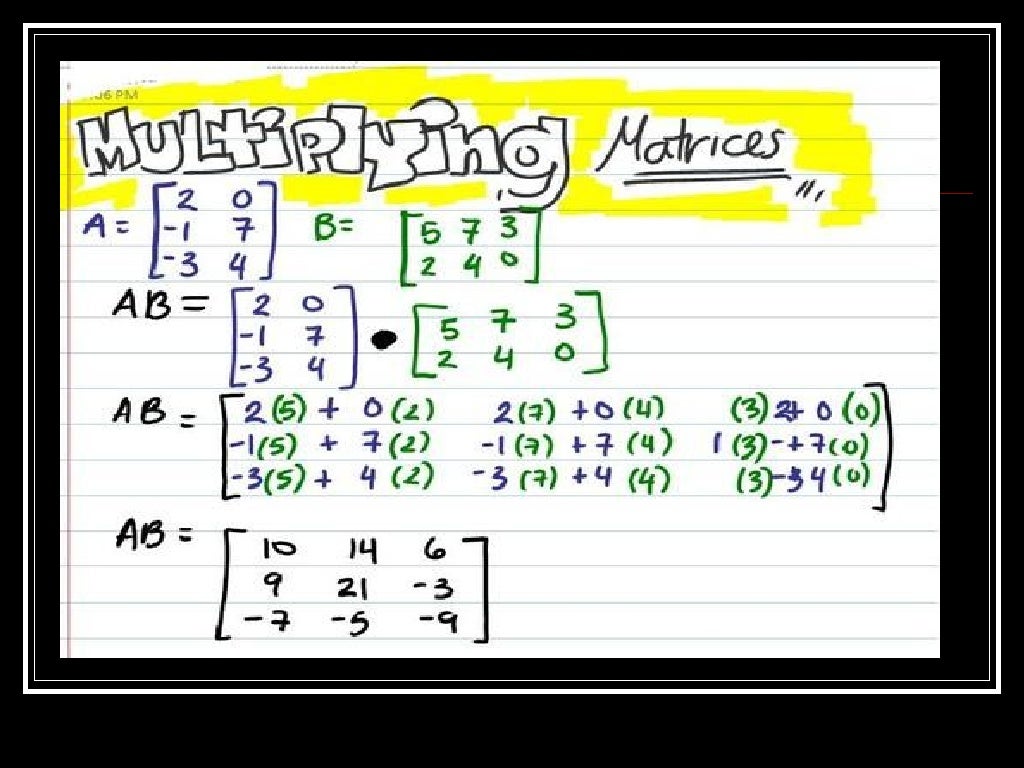 :06 PM
Multiplying Matrices
A = [2 0 B= [5 7 3
-1 7 2 4 0]
-3 4]
AB = [2 0 • [5 7 3
-1 7 2 4 0]
-3 4]
AB = [2(5) + 0(2) 2(7) + 0(4) (3)2+ 0(0)
-1(5) + 7(2) -1(7) + 7(4) 1(3)-+7(0)
-3(5) + 4(2) -3(7) + 4(4) (3)-34(0)]
AB = [10 14 6
9 21 -3
-7 -5 -9]